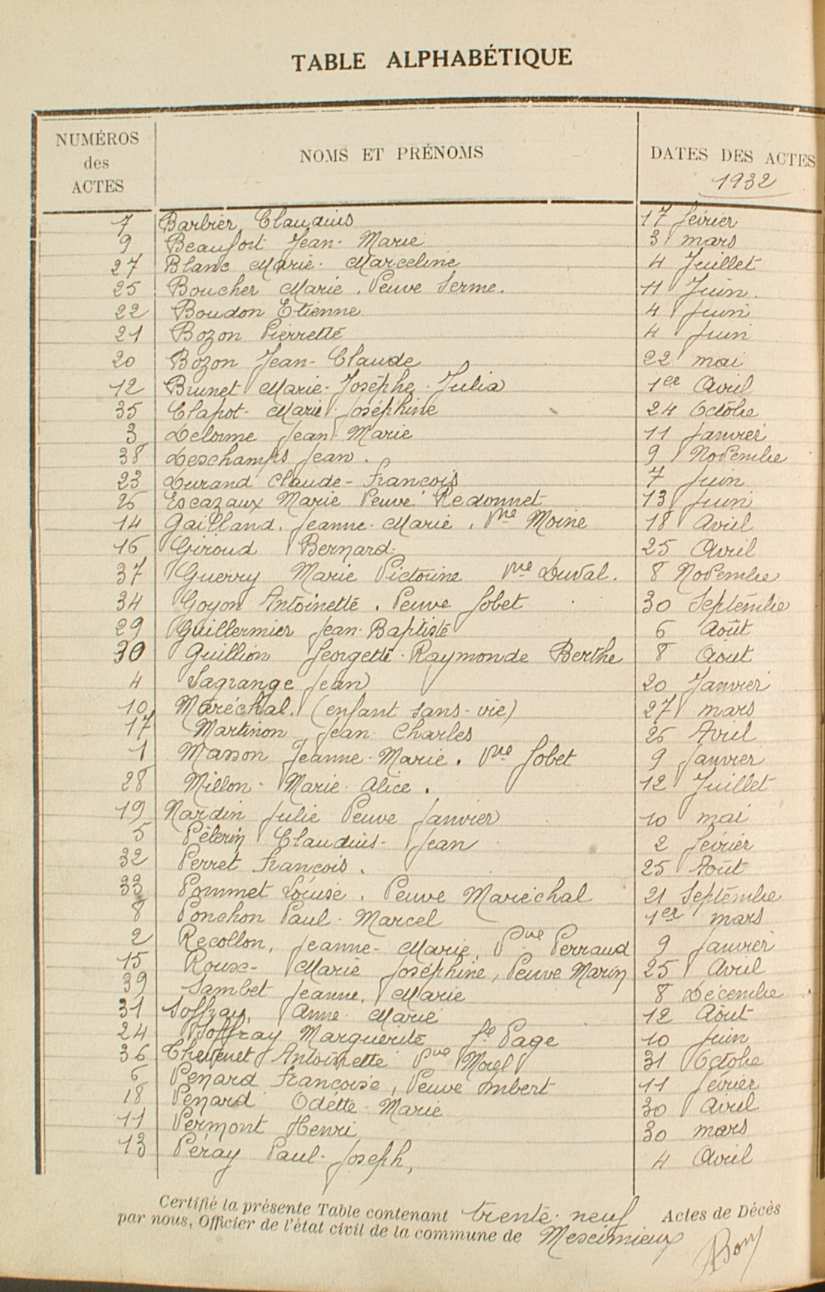 TABLE ALPHABÉTIQUE
NUMÉROS des ACTES NOMS ET PRÉNOMS DATES DES ACTES
1932
7 Barbier Claudius 17 février
9 Beaufort Jean-Marie 3 mars
27 Blanc Marie-Marceline 4 Juillet
25 Boucher Marie, Veuve Serme. 11 Juin.
22 Boudon Etienne 4 Juin
21 Bozon Pierrette 4 Juin
20 Bozon Jean-Claude 22 mai
12 Brunet Marie-Josèphe-Julia 1er Avril
35 Clapot-Marie-Joséphine 24 Octobre
3 Delorme Jean-Marie 11 Janvier
38 Deschamps Jean. 9 Novembre
23 Durand Claude-François 7 Juin
26 Escazaux Marie Veuve Redonnet 13 Juin
14 Gailland, Jeanne-Marie, Vve Moine 18 Avril
16 Giroud Bernard. 25 Avril
37 Guerry Marie Victorine Vve Duval. 8 Novembre
34 Goyon Antoinette, Veuve Jobet 30 Septembre
29 Guillermier Jean-Baptiste 6 Août
30 Guillion Georgette-Raymonde Berthe 8 Aout
4 Lagrange Jean 20 Janvier
10 Maréchal. (enfant sans-vie) 27 mars
17 Martinon Jean Charles 25 Avril
1 Masson Jeanne-Marie. Vve Jobet 9 Janvier
28 Millon-Marie-Alice. 12 Juillet
19 Nardin Julie Veuve Janvier 10 mai
5 Pèlerin Claudius-Jean 2 février
32 Perret François. 25 Août
33 Pommet Louise, Veuve Maréchal 21 Septembre
8 Ponchon Paul-Marcel 1er mars
2 Recollon, Jeanne-Marie, Vve Perraud 9 Janvier
15 Roux-Marie Joséphine, Veuve Marin 25 Avril
39 Sambet Jeanne, Marie 8 Décembre
31 Soffray, Anne-Marie 12 Août
24 Soffray Marguerite fe Page 10 Juin
36 Thevenet Antoinette Vve Morel 31 Octobre
6 Venard Françoise, Veuve Imbert 11 février
18 Venard Odette-Marie 30 Avril
11 Vermont Henri 30 mars
13 Véray Paul-Joseph, 4 Avril
Certifié la présente Table contenant trente-neuf Actes de Décès
par nous, Officier de l'état civil de la commune de Meximieux